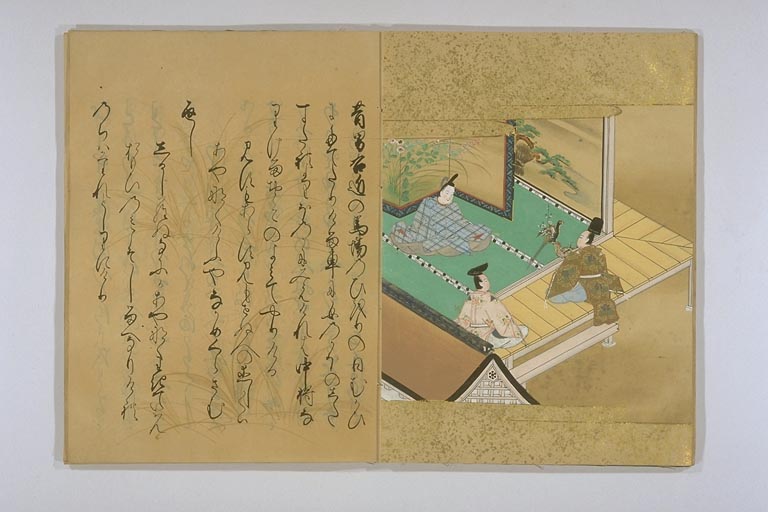 昔男右近の馬場のひをりの日むかひ
にたてたりける車に女のかほのした
すたれよりほのかに見えけれは中将な
りけるおとこのよみてやりける
見すもあらす見もせぬ人の恋しくは
あやなくけふやなかめくらさむ
返し
しるしらぬなにかあやなくわきていはん
おもひのみこそしるへなりけれ
のちはたれとしりにけり